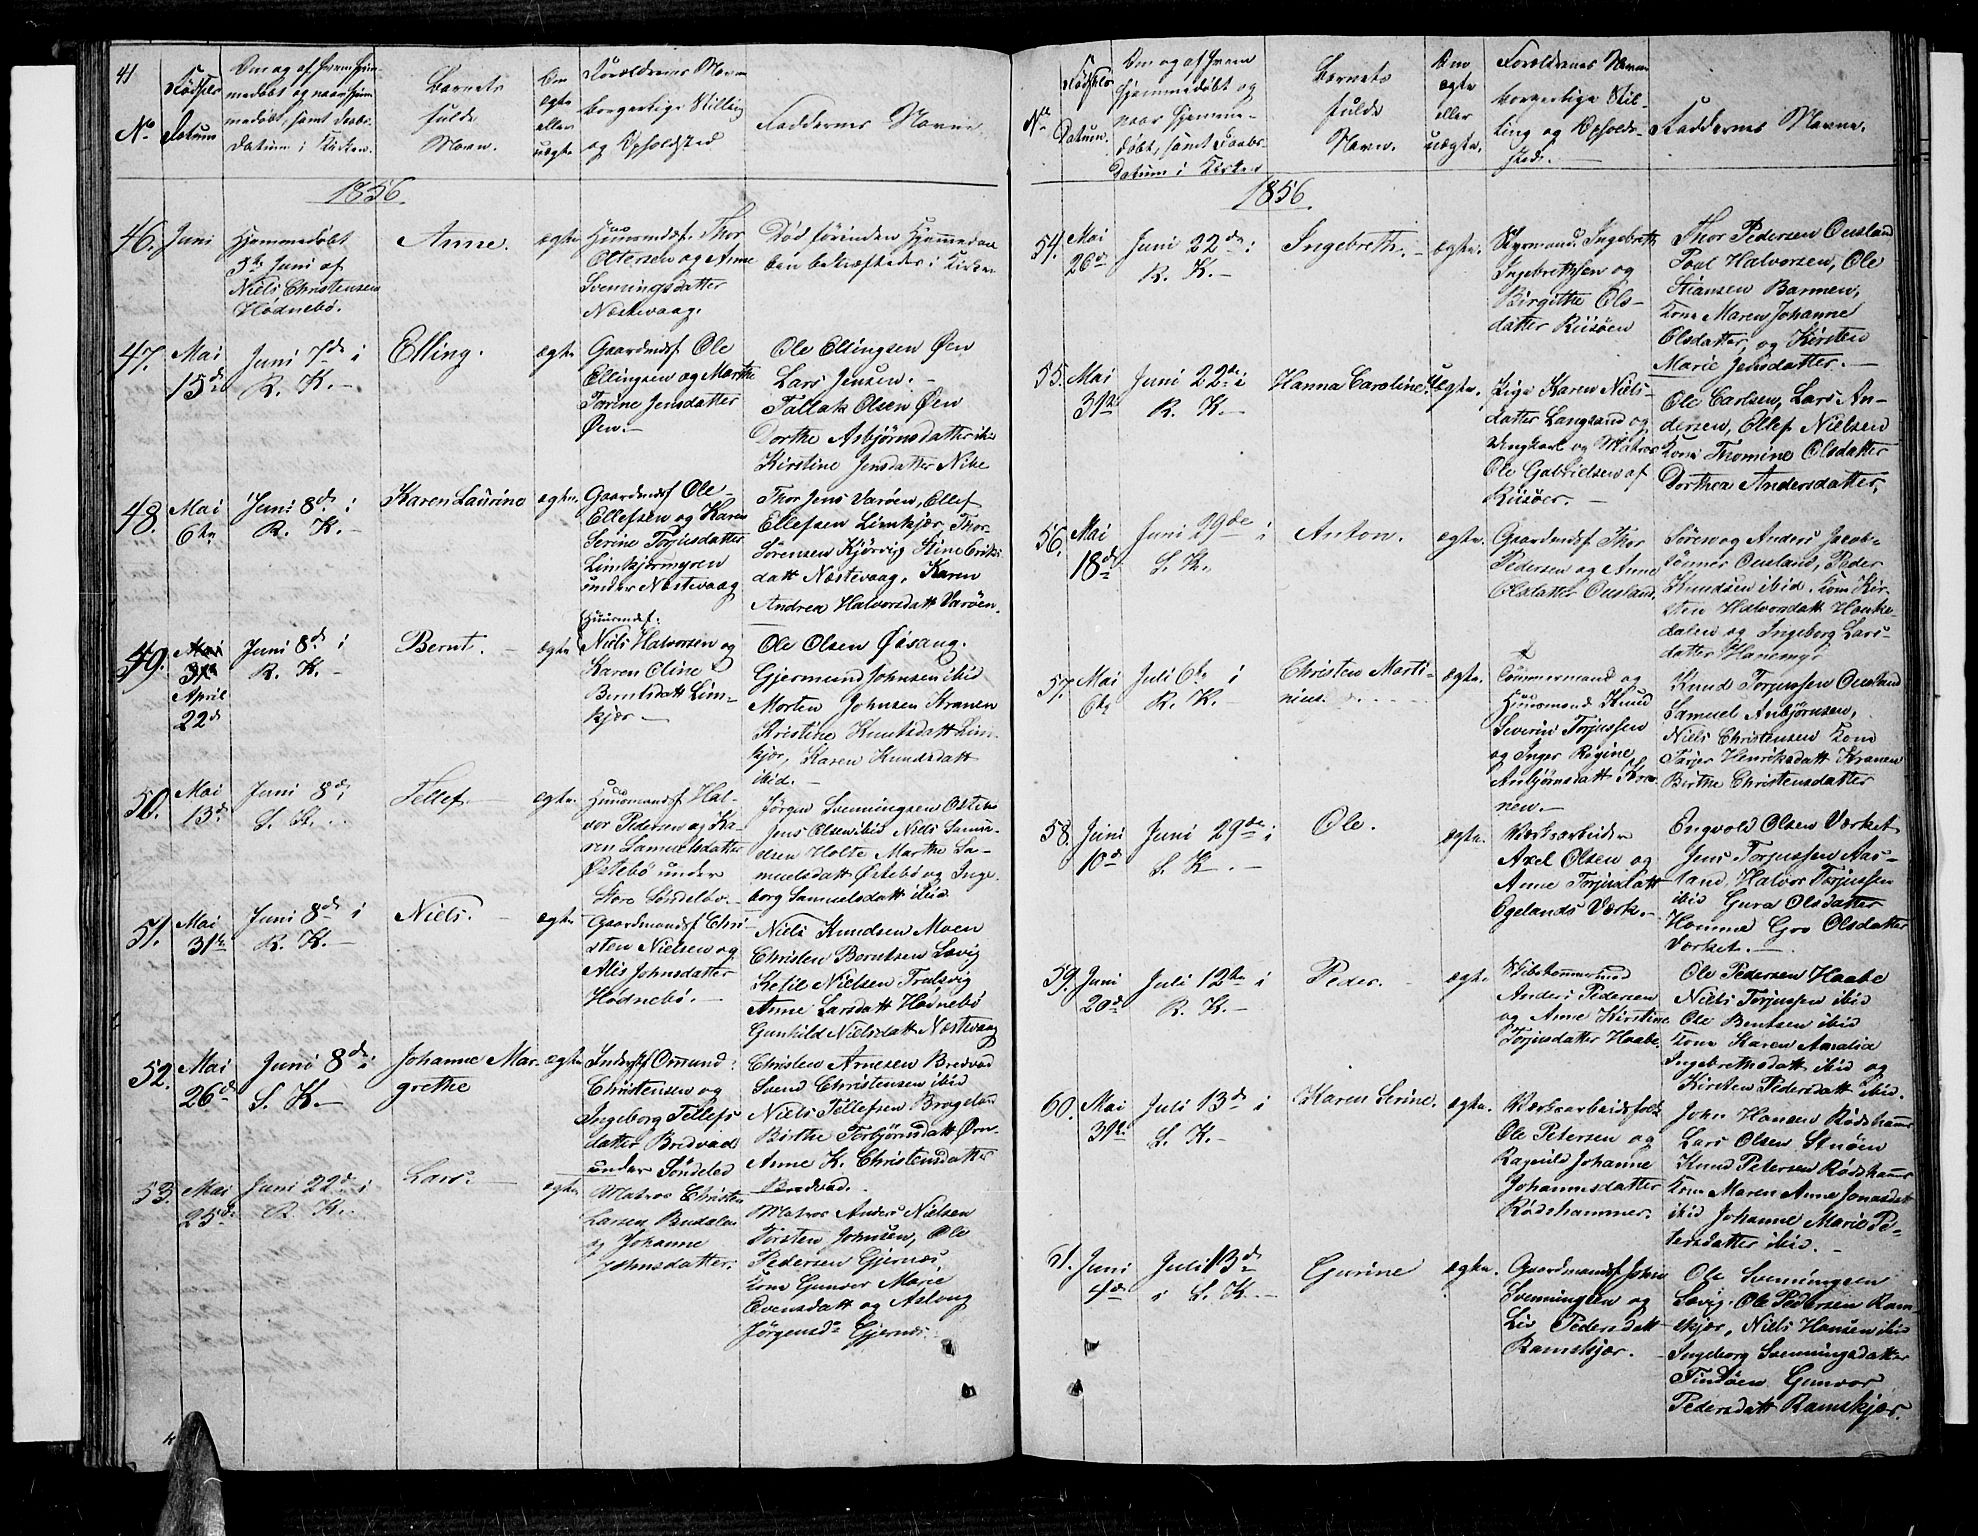 41
No
Fødsels
Datum
Om og af hvem hjem-
medøbt og naar hjem
medøbt, samt Daabs-
datum i Kirken.
Barnets
fulde
Navn.
Om
ægte
eller
uægte
Forældrenes Navn
borgerlige Stilling
og Opholdsted
Faddernes Navne
1856.
46. Juni
Hjemmedøbt
5te Juni af
Niels Christensen
Hødnebø.
Anne.
ægte
Huusmdsf. Thor
Oltersen og Anne
Svenningsdatter
Næstevaag.
Død förinden Hjemmedaa
ben bekræftedes i Kirken
47. Mai
15de
Juni 7de i
R. K. —
Elling.
ægte
Gaardmdsf. Ole
Ellingsen og Marthe
Torine Jensdatter
Øen. —
Ole Ellingsen Øen
Lars Jensen. —
Tallak Olsen Øen
Dorthe Asbjørnsdatter ibid
Kirstine Jensdatter Nibe
48. Mai
6te
Juni 8de i
R. K. —
Karen Laurine
ægte.
Gaardmdsf Ole
Ellefsen og Karen
Serine Torjusdatter
Limkjærmyren
under Næstevaag
Thor Jens Varøen, Ellef
Ellefsen Limkjær, Thor
Sörensen Kjørvig Stine Eriks
datt Næstevaag, Karen
Andrea Halvorsdatt Varøen.
49.
April
22de
Juni 8de i
R. K. —
Bernt. —
ægte
Huusmdsf.
Niels Halvorsen og
Karen Oline
Berntsdatt Lim-
kjær —
Ole Olsen Øisang.
Gjermund Johnsen ibid
Morten Johnsen Kranen
Kristine Knutsdatt Lim-
kjær, Karen Knudsdatt
ibid. —
50. Mai
13de
Juni 8de i
S. K.
Tellef. —
ægte.
Huusmandsf. Hal-
vor Pedersen og Ka-
ren Samuelsdatter
Østebö under
Store Söndeløv.
Jørgen Svenningsen Østebö
Jens Olsen ibid Niels Samu-
elsen Holte Marthe Sa-
muelsdatt Østebø og Inge-
borg Samuelsdatt ibid
51. Mai
31te
Juni 8de i
R. K. —
Niels. —
ægte
Gaardmandsf. Chri-
sten Nielsen og
Alis Johnsdatter
Hødnebø. —
Niels Knudsen Moen
Christen Berntsen Savig
Ketil Nielsen Tralsvig
Anne Larsdatt Hødnebø
Gunhild Nielsdatt Næstevaag
52. Mai
26de
Juni 8de i
S. K. —
Johanne Mar-
grethe
ægte
Inderstf Omund
Christensen og
Ingeborg Tellefs
datter Bredvad
under Söndeled
Christen Arnesen Bredvad
Svend Christensen ibid
Niels Tellefsen
Birthe Torbjørnsdatt Ørn-
Anne K. Christensdatter
Bredvad. —
53. Mai
25de
Juni 22de i
R. K. —
Lars. —
ægte
Matros Christen
Larsen Budalen
og Johanne
Johnsdatter.
Matros Anders Nielsen
Torsten Johnsen, Ole
Pedersen Gjernæs,
Kone Gunvor Marie
Evensdatt og Aslaug
Jörgensd. Gjernæs.
No
Fødsels
Datum.
Om og af hvem
hjemmedøbt og
naar hjemme-
døbt, samt Daabs-
datum i Kirken
Barnets
fulde
Navn.
Om
ægte
eller
uægte.
Forældrenes Navn
borgerlige Stil-
ling og Opholds-
sted. —
Faddernes Navne.
1856.
54. Mai
26de
Juni 22de i
R. K. —
Ingebreth. —
ægte.
Styrmand Ingebreth
Ingebrethsen og
Birgitte Ols-
datter Riisøen
Thor Pedersen Ousland
Poul Halvorsen, Ole
Stiansen Barmen,
Kone Maren Johanne
Olsdatter, og Kirsten
Marie Jensdatter. —
55. Mai
31te
Juni 22de i
R. K. —
Hanna Caroline
Uægte.
Pige Karen Niels-
datter Langsand og
Ungkarl og Matros
Ole Gabrielsen af
Riisøer. —
Ole Carlsen, Lars An-
dersen, Ellef Nielsen
Kone Thomine Olsdatter
Dorthea Andersdatter,
56. Mai
18de
Juni 29de i
S. K.
Anton.
ægte.
Gaardmdsf Thor
Pedersen og Anne
Olsdatter Ousland.
Sören og Anders Jacob-
sönner Ousland, Peder
Knudsen ibid. Kone Kir-
sten Halvorsdatt Hauke-
dalen og Ingeborg Lars-
datter Hanemyr
57. Mai
6te
Juli 6te i
R. K. —
Christen Marti-
nius.
ægte.
Tömmermand og
Huusmand Knud
Severin Torjussen
og Inger Regine
Anbjørnsdatt Kra-
nen. —
Knud Torjussen Ousland
Samuel Anbjørnsen,
Niels Christensen Kone
Tarjer Henriksdatt Kranen
Birthe Christensdatter
58. Juni
10de
Juni 29de i
S. K. —
Ole.
ægte.
Værksarbeider
Axel Olsen og
Anne Torjusdatt
Egelands Værk. —
Engvold Olsen Værket
Jens Torjussen Aas-
land, Halvor Torjussen
ibid Guro Olsdatter
Homme Gro Olsdatter
Værket. —
59. Juni
20de
Juli 12te i
R. K. —
Peder.
ægte.
Skibstømmermd
Anders Pedersen
og Anne Kirstine
Torjusdatter Haabe.
Ole Pedersen Haabe
Niels Torjussen ibid
Ole Berntsen ibid
Kone Karen Amalia
Ingebrethsdatt ibid og
Kirsten Pedersdatt ibid.
60. Mai
31te
Juli 13de i
S. K. —
Karen Serine.
ægte.
Værksarbeidsfolk
Ole Petersen og
Ragnild Johanne
Johannesdatter
Rødshammer.
John Hansen Rødshamr
Lars Olsen Stuöen
Knud Petersen Rødshamr
Kone Maren Anne Jonasdatt
ibid Johanne Marie Pe-
tersdatter ibid. —
61. Juni
4de
Juli 13de
i S. K. —
Gurine
ægte.
Gaardmandsf John
Svenningsen og
Liv Pedersdatt
Ramskjær.
Ole Svenningsen
Savig. Ole Pedersen Ram-
skjær, Niels Hansen ibid
Ingeborg Svenningsdatter
Tindöen Gunvor
Pedersdatt Ramskjær.